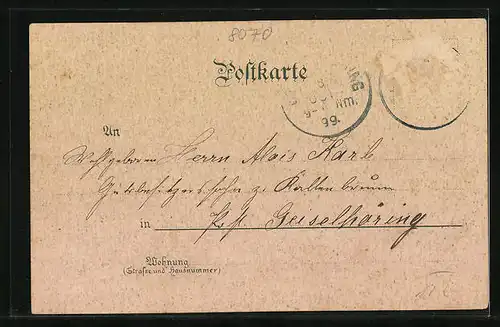 8070
Postkarte
Nm.
99.
An
Wohlgeboren Herrn Alois Karl
Gutsbesitzerssohn z. Kaltenbrunn
in Post Geiselhöring
Wohnung
(Strasse und Hausnummer)